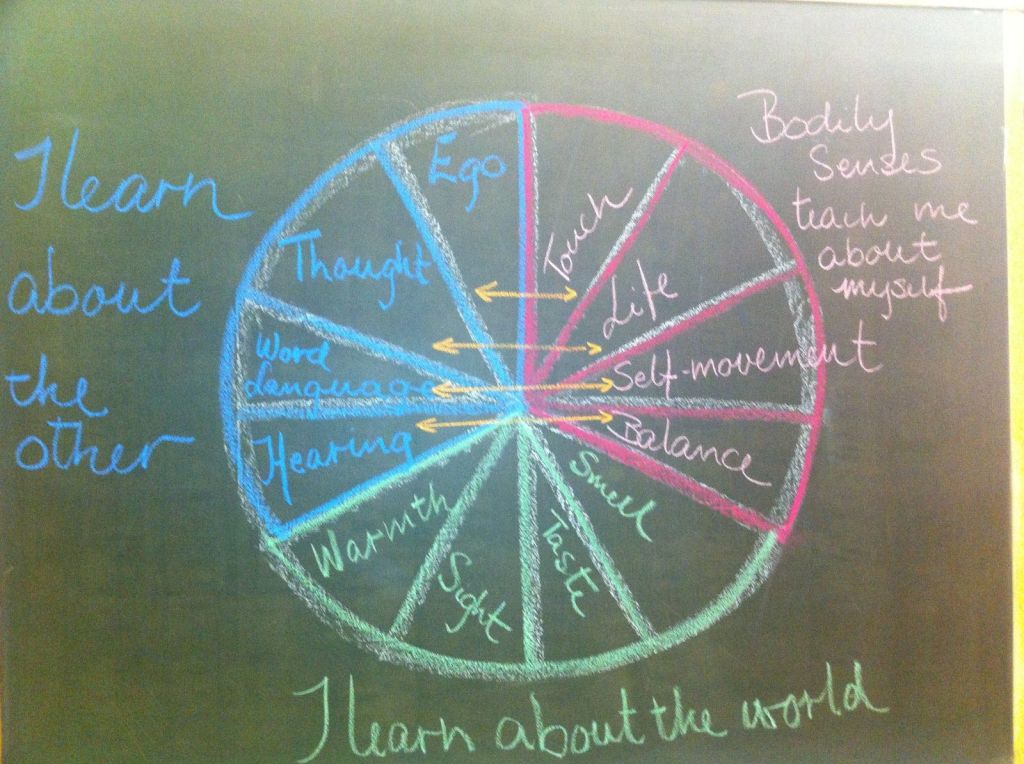 I learn
about
the
other
Ego
Thought
Word
Language
Hearing
Touch
Life
Self-movement
Balance
Smell
Taste
Sight
Warmth
Bodily
Senses
teach me
about
myself
I learn about the world